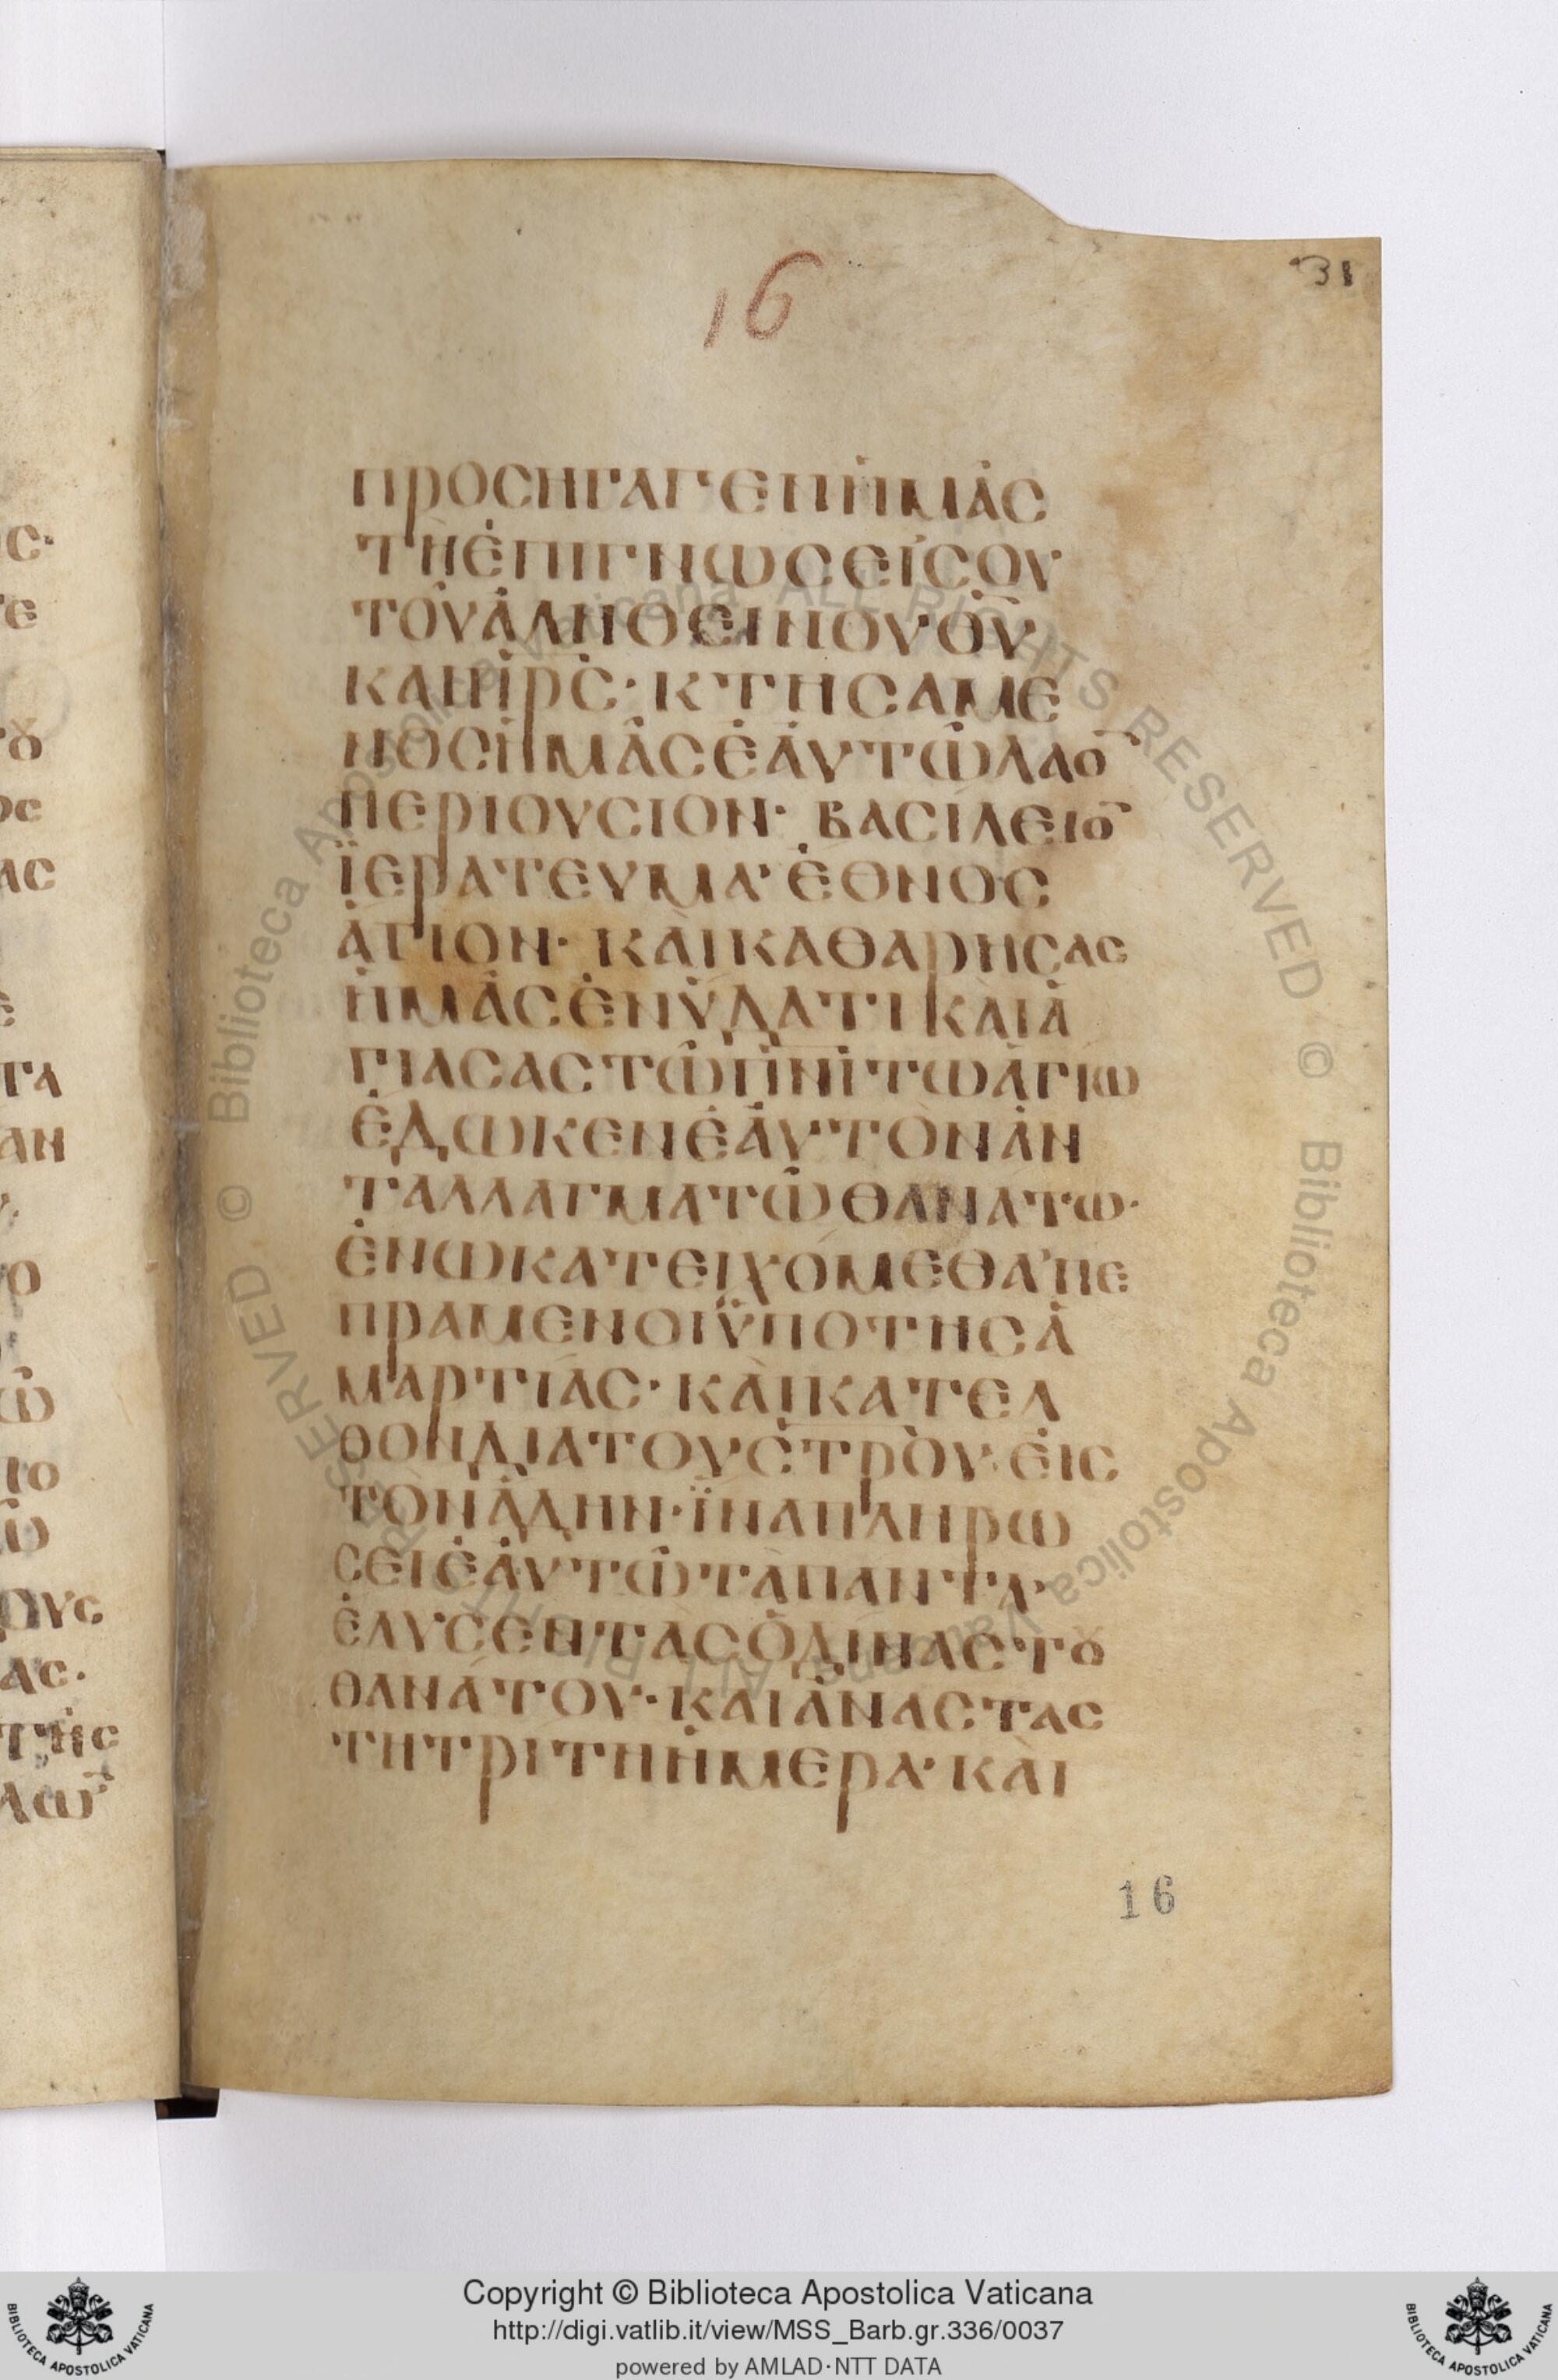 16
31
ΠΡΟΣΗΓΑΓΕΝ ἩΜΑΣ
ΤΗ ἘΠΙΓΝΩΣΕΙ ΣΟΥ
ΤΟΥ ἈΛΗΘΕΙΝΟΥ Θ̅Υ̅
ΚΑΙ Π̅Ρ̅Σ̅· ΚΤΗΣΑΜΕ
ΝΟΣ ἩΜΑΣ ἙΑΥΤΩ ΛΑΟ̅
ΠΕΡΙΟΥΣΙΟΝ· ΒΑΣΙΛΕΙΟ̅
ΪΕΡΑΤΕΥΜΑ· ἘΘΝΟΣ
ἉΓΙΟΝ· ΚΑΙ ΚΑΘΑΡΗΣΑΣ
ἩΜΑΣ ἘΝ ὙΔΑΤΙ ΚΑΙ Ἁ
ΓΙΑΣΑΣ ΤΩ Π̅Ν̅Ι̅ ΤΩ ἉΓΙΩ
ἘΔΩΚΕΝ ἙΑΥΤΟΝ ἈΝ
ΤΑΛΛΑΓΜΑ ΤΩ ΘΑΝΑΤΩ·
ἘΝ Ω ΚΑΤΕΙΧΟΜΕΘΑ ΠΕ
ΠΡΑΜΕΝΟΙ ΫΠΟ ΤΗΣ Ἁ
ΜΑΡΤΙΑΣ· ΚΑΙ ΚΑΤΕΛ
ΘΟΝ ΔΙΑ ΤΟΥ Σ̅Τ̅Ρ̅ΟΥ ΕΙΣ
ΤΟΝ ἉΔΗΝ· ΪΝΑ ΠΛΗΡΩ
ΣΕΙ ἙΑΥΤΩ ΤΑ ΠΑΝΤΑ·
ἘΛΥΣΕΝ ΤΑΣ ὈΔΙΝΑΣ ΤȢ
ΘΑΝΑΤΟΥ· ΚΑΙ ἈΝΑΣΤΑΣ
ΤΗ ΤΡΙΤΗ ἩΜΕΡΑ· ΚΑΙ
16
Copyright © Biblioteca Apostolica Vaticana
http://digi.vatlib.it/view/MSS_Barb.gr.336/0037
powered by AMLAD·NTT DATA
BIBLIOTECA APOSTOLICA VATICANA
BIBLIOTECA APOSTOLICA VATICANA